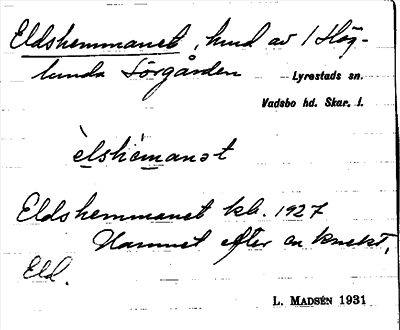 Eldshemmanet, hmd av 1 Hög-
lunda Sörgården
Lyrestads sn.
Vadsbo hd. Skar. l.
èlshèmanət
Eldshemmanet kb. 1927
Namnet efter en knekt,
Eld.
L. MADSÉN 1931